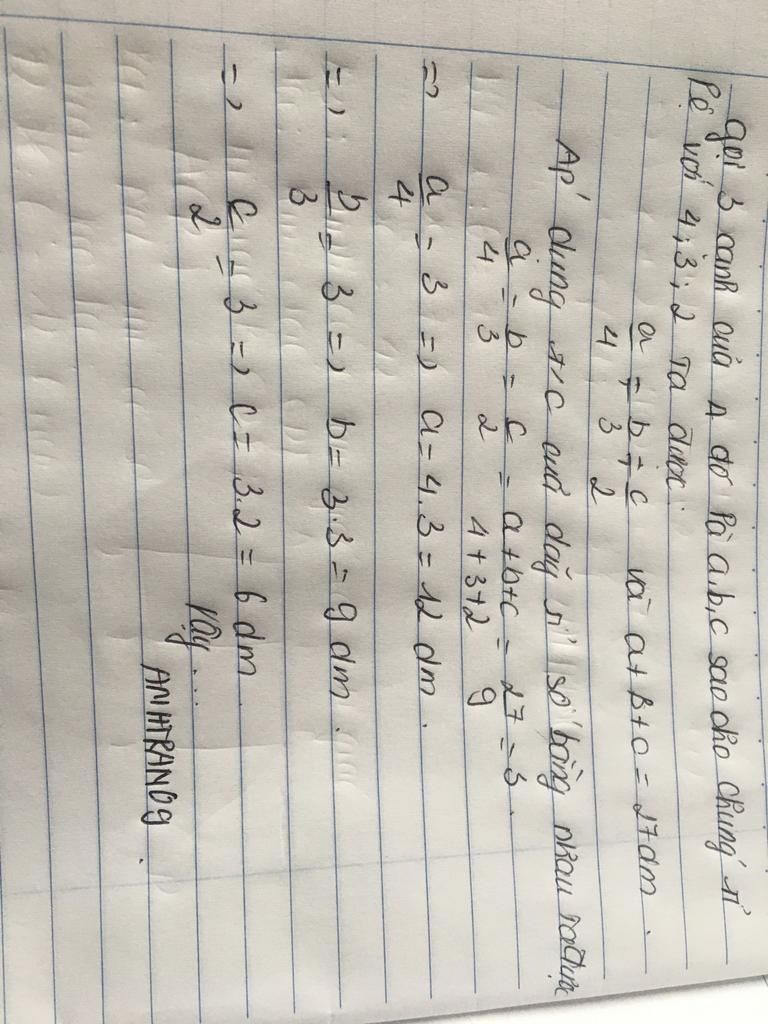 Gọi 3 cạnh của Δ đó là a,b,c sao cho chúng tỉ
lệ với 4; 3; 2 Ta được:
a/4 = b/3 = c/2 và a+b+c = 27dm.
Áp dụng t/c của dãy tỉ số bằng nhau ta được
a/4 = b/3 = c/2 = a+b+c/4+3+2 = 27/9 = 3.
=> a/4 = 3 => a = 4.3 = 12 dm.
=> b/3 = 3 => b = 3.3 = 9 dm.
=> c/2 = 3 => c = 3.2 = 6 dm.
Vậy...
ANHTRAN09.